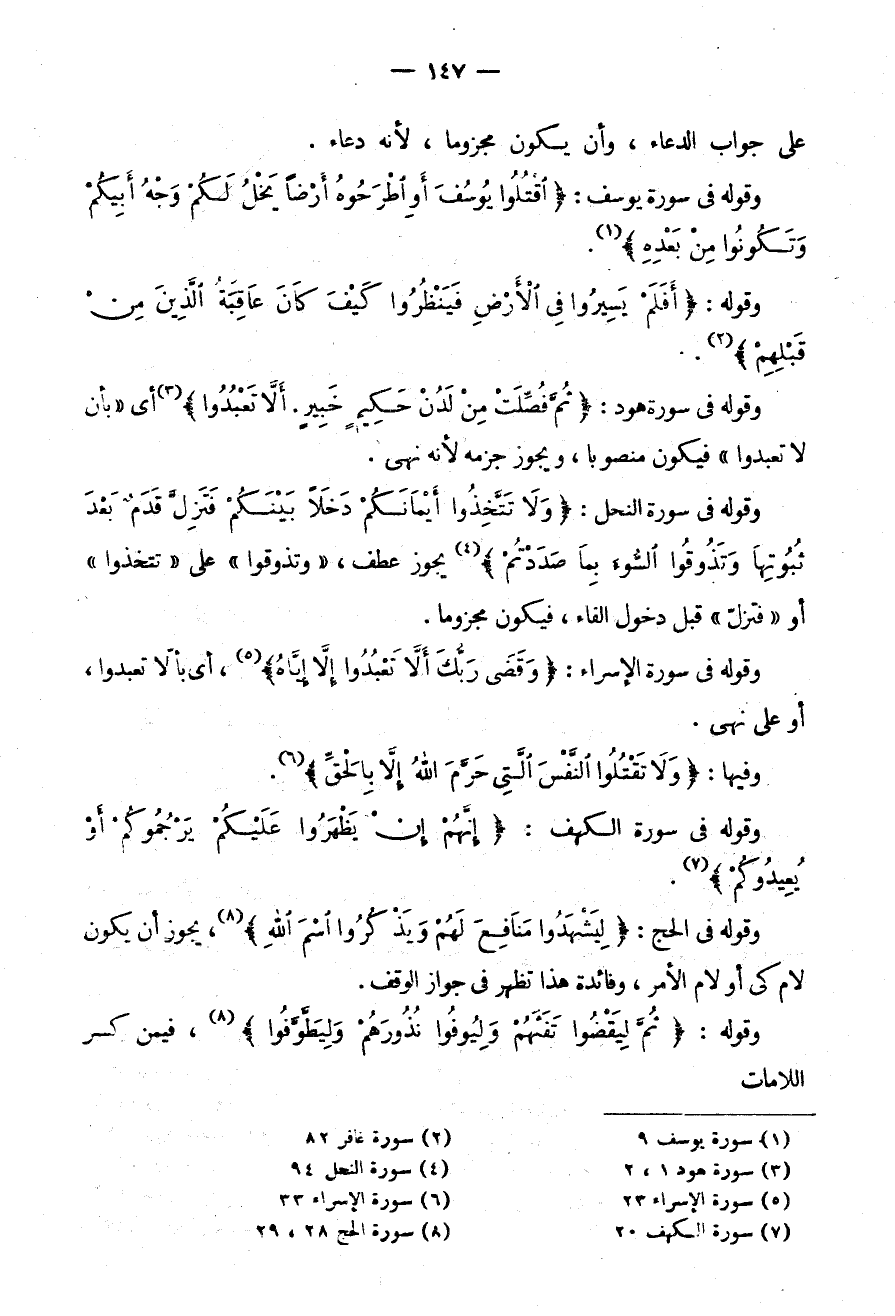 — ١٤٧ —
على جواب الدعاء ، وأن يـكون مجزوما ، لأنه دعاء .
وقوله فى سورة يوسف : ﴿ ٱقْتُلُوا يُوسُفَ أَوِ ٱطْرَحُوهُ أَرْضاً يَخْلُ لَـكُمْ وَجْهُ أَبِيكُمْ
وَتَـكُونُوا مِنْ بَعْدِهِ ﴾(١).
وقوله : ﴿ أَفَلَمْ يَسِيرُوا فِى ٱلْأَرْضِ فَيَنْظُرُوا كَيْفَ كَانَ عَاقِبَةُ ٱلَّذِينَ مِنْ
قَبْلِهِمْ ﴾(٢) .
وقوله فى سورة هود : ﴿ ثُمَّ فُصِّلَتْ مِنْ لَدُنْ حَـكِيمٍ خَبِيرٍ . أَلَّا تَعْبُدُوا ﴾(٣) أى « بأن
لا تعبدوا » فيكون منصوبا ، ويجوز جزمه لأنه نهى .
وقوله فى سورة النحل : ﴿ وَلَا تَتَّخِذُوا أَيْمَانَـكُمْ دَخَلًا بَيْنَـكُمْ فَتَزِلَّ قَدَمٌ بَعْدَ
ثُبُوتِهَا وَتَذُوقُوا ٱلسُّوءَ بِمَا صَدَدْتُمْ ﴾(٤) يجوز عطف ، « وتذوقوا » على « تتخذوا »
أو « فتزلّ » قبل دخول الفاء ، فيكون مجزوما .
وقوله فى سورة الإسراء : ﴿ وَقَضَى رَبُّكَ أَلَّا تَعْبُدُوا إِلَّا إِيَّاهُ﴾(٥) ، أى بألّا تعبدوا ،
أو على نهى .
وفيها : ﴿ وَلَا تَقْتُلُوا ٱلنَّفْسَ ٱلَّـتِى حَرَّمَ ٱللهُ إِلَّا بِالْحَقِّ ﴾(٦).
وقوله فى سورة الـكهف : ﴿ إِنَّهُمْ إِنْ يَظْهَرُوا عَلَيْـكُمْ يَرْجُمُوكُمْ أَوْ
يُعِيدُوكُمْ ﴾(٧) .
وقوله فى الحج : ﴿ لِيَشْهَدُوا مَنَافِـعَ لَهُمْ وَيَذْكُرُوا ٱسْمَ ٱللهِ ﴾(٨)، يجوز أن يكون
لام كى أو لام الأمر ، وفائدة هذا تظهر فى جواز الوقف .
وقوله : ﴿ ثُمَّ لِيَقْضُوا تَفَثَهُمْ وَلِيُوفُوا نُذُورَهُمْ وَلِيَطَّوَّفُوا ﴾(٨) ، فيمن كسر
اللامات
(١) سورة يوسف ٩ (٢) سورة غافر ٨٢
(٣) سورة هود ١ ، ٢ (٤) سورة النحل ٩٤
(٥) سورة الإسراء ٢٣ (٦) سورة الإسراء ٣٣
(٧) سورة الـكهف ٢٠ (٨) سورة الحج ٢٨ ، ٢٩